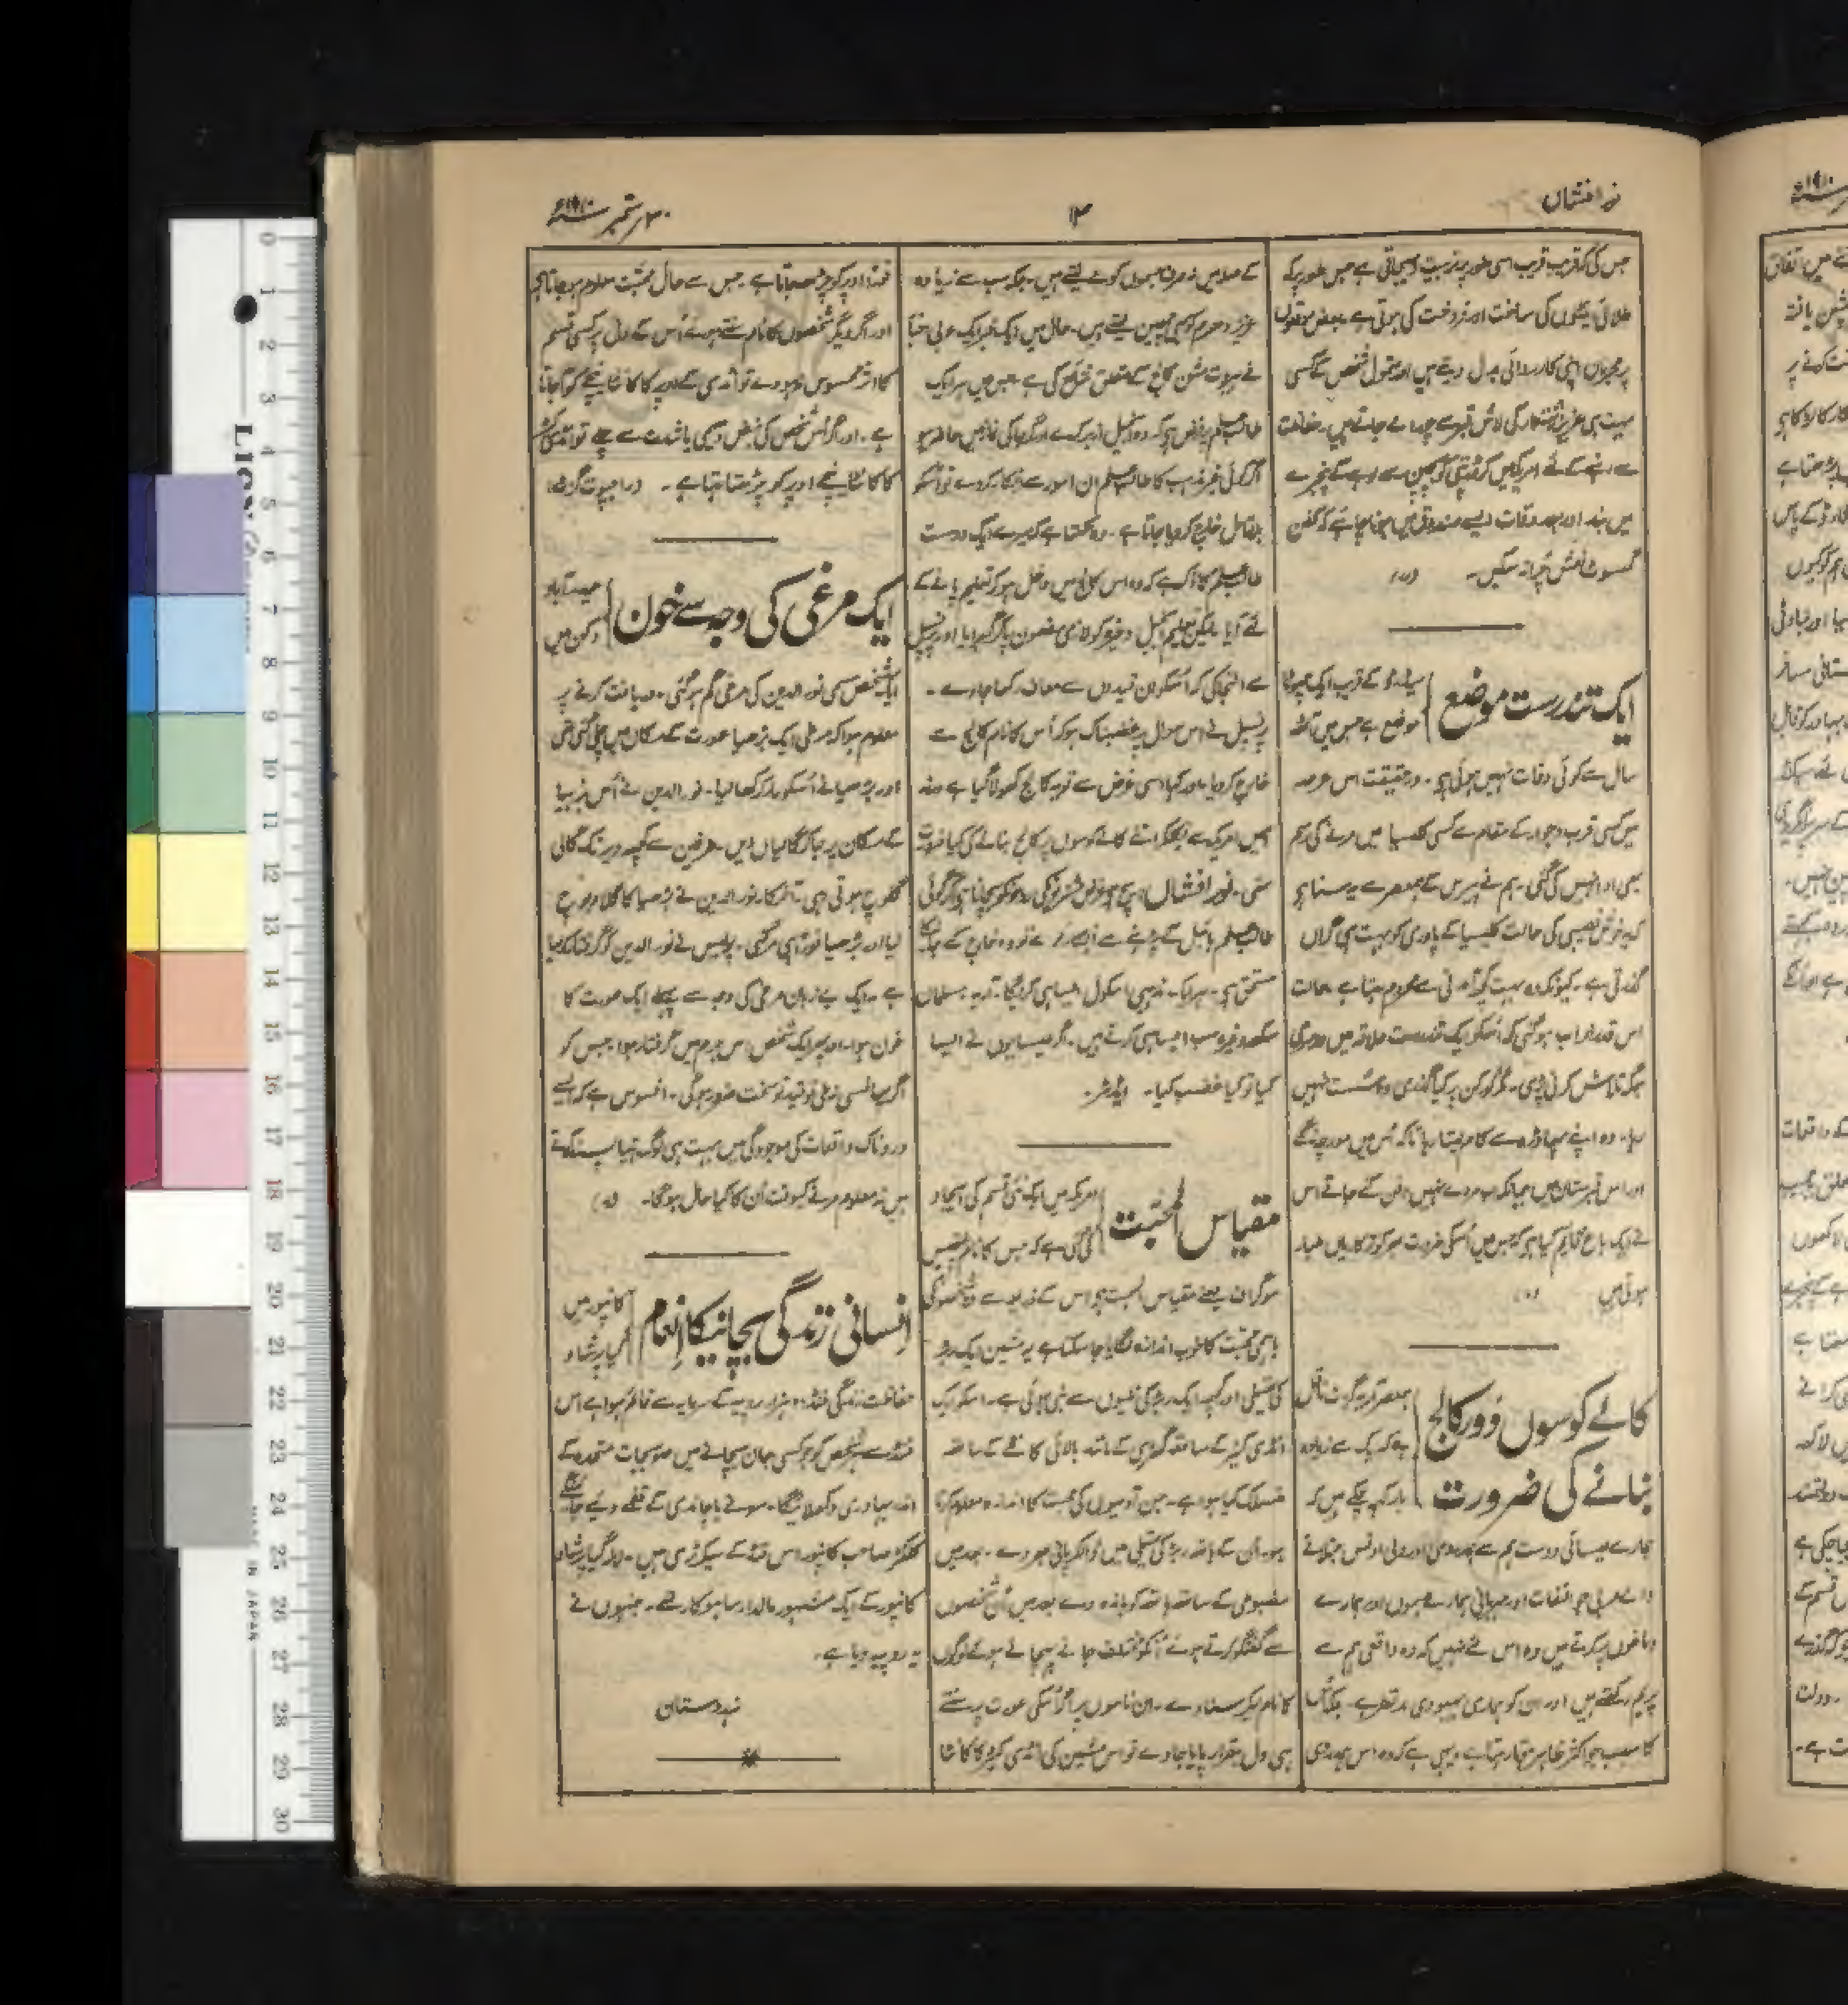 نور افشاں
۱۲
۳۰ ستمبر ۱۹۱۰ء
جس کی قریب قریب اسی طور پر تربیت دیجاتی ہے جس طور پر کہ
طلائی کی ساخت اور فروخت کی ہوتی ہے بعض موقعوں
پر اپنی کارروائی بدل دیتے ہیں اور متمول شخص کے کسی
بہت ہی عزیز رشتہ دار کی لاش قبر سے چرا لے جاتے ہیں۔ حفاظت
سے لوہے کے پنجرے
میں بند اور بعد وفات ایسے صندوق میں چاہئے کہ کفن
کھسوٹ نعش چرا نہ سکیں۔
ایک تندرست موضع
کے قریب ایک چھوٹا
موضع ہے جس میں آٹھ
سال سے کوئی وفات نہیں ہوئی ہے۔ درحقیقت اس عرصہ
میں کسی قرب وجوار کے مقام سے کسی کلیسیا میں مرنے کی رسم
بھی ادا نہیں کی گئی۔ ہم نے پیرس کے ہمعصر سے یہ سنا ہے
کہ یہ خوش نصیبی کی حالت کلیسیا کے پادری کو بہت ہی گراں
گذرتی ہے۔ کیونکہ وہ بہت کچھ آمدنی سے محروم رہتا ہے حالت
اس قدر خراب ہو گئی کہ اُسکو ایک تندرست علاقہ میں دوسری
جگہ تلاش کرنی پڑی۔ مگر گورکن پر کیا گذری وہ سست نہیں
رہا۔ وہ اپنے پھاوڑہ سے کام لیتا رہا تاکہ اُس میں مورچہ نہ لگے
اور اس قبرستان میں جہانکہ اب مردے نہیں دفن کئے جاتے اس
نے ایک باغ قایم کیا ہے کہ جس میں اُسکی ضرورت بھر کو ترکاریاں طیار
ہوتی ہیں
کالے کوسوں دور کالج
بنانے کی ضرورت
ناقل
ہے کہ ایک سے زیادہ
بار کہہ چکے ہیں کہ
ہمارے عیسائی دوست ہم سے ہمدردی اور دلی اونس جتلانے
والے مربی جو التفات اور مہربانی ہمارے بچوں اور ہمارے
دماغوں پر کرتے ہیں وہ اس لئے نہیں کہ وہ واقعی ہم سے
پریم رکھتے ہیں اور ان کو ہماری بہبودی مدنظر ہے۔ بلکہ اُسکا
کا سبب جو اکثر ظاہر ہوتا رہتا ہے وہ یہی ہے کہ وہ اس ہمدردی
کے صلہ میں نہ صرف بچوں کو لے لیتے ہیں۔ جبکہ سب سے زیادہ
عزیز دھرم کو بھی چھین لیتے ہیں۔ حال میں ایک خبر ایک عربی اخبار
نے بیروت مشن کالج کے متعلق شائع کی ہے جس میں ہر ایک
طالب علم پر فرض ہے کہ وہ انجیل ازبر کرے اور گرجا کی نماز میں حاضر ہو
اگر کوئی غیر مذہب کا طالب علم ان امور سے انکار کر دے تو اسکو
بلا تامل خارج کر دیا جاتا ہے۔ وہ لکھتا ہے کہ میرے ایک دوست
طالب علم کا ذکر ہے کہ وہ اس کالج میں داخل ہو کر تعلیم پانے کے
لئے آیا لیکن تعلیم انجیل وغیرہ کو لازمی مضمون پا کر گھبرایا اور پرنسپل
سے التجا کی کہ اُسکو ان قیدوں سے معاف رکھا جاوے۔
پرنسپل نے اس سوال پر غضبناک ہو کر اُس کا نام کالج سے
خارج کر دیا اور کہا اسی غرض سے تو یہ کالج کھولا گیا ہے ورنہ
ہمیں امریکہ سے چلکر اتنے کالے کوسوں پر کالج بنانے کی کیا ضرورت
تھی۔ نور افشاں
طالب علم بائبل کے پڑہنے سے انکار کرے تو وہ خارج کئے جانیکا
مستحق ہے۔ ہر ایک مذہبی اسکول ایسا ہی کریگا۔ آریہ۔ مسلمان
سکھ وغیرہ سب ایسا ہی کرتے ہیں۔ اگر عیسائیوں نے ایسا
کیا تو کیا غضب کیا۔ ایڈیٹر۔
مقیاس المحبت
امریکہ میں ایک نئی قسم کی ایجاد
کی گئی ہے کہ جس کا نام
سوگراف یعنے مقیاس المحبت ہے اس کے ذریعہ سے دو شخصوں کی
باہمی محبت کا خوب اندازہ لگایا جا سکتا ہے یہ مشین ایک ربڑ
کی تھیلی اور کچھ ایک ربڑ کی نلیوں سے بنی ہوئی ہے۔ اسکو ایک
کے ساتھ گھڑی کے مانند بالائی کانٹے کے ساتھ
منسلک کیا ہوا ہے۔ جن آدمیوں کی محبت کا اندازہ معلوم کرنا
ہو۔ اُن کے ہاتھ ربڑ کی تھیلی میں ڈالکر پانی بھر دے۔ بعد میں
مضبوطی کے ساتھ ہاتھ کو باندھ دے بعد میں اُن شخصوں
سے گفتگو کرتے ہوئے اُنکو مختلف جانے پہچانے ہوئے لوگوں
کا نام لیکر سنا دے۔ ان ناموں میں اگر اُسکی عورت پر سنتے
ہی دل بیقرار پایا جاوے تو اس مشین کی کا کانٹا
فوراً اوپر کو چڑھ جاتا ہے۔ جس سے حال محبت معلوم ہو جاتا ہے
اور اگر دیگر شخصوں کا نام سنتے ہوئے اُس کے دل پر کسی قسم
کا اثر محسوس نہ ہووے تو کے اوپر کا کانٹا نیچے کو آ جاتا
ہے۔ اور اگر اُس شخص کی نبض دھیمی یا شدت سے چلے تو
کا کانٹا نیچے اوپر کو چڑھتا رہتا ہے۔ (راجپوت گزٹ)
ایک مرغی کی وجہ سے خون
حیدرآباد
دکن میں
ایک شخص مسمی نور الدین کی مرغی گم ہو گئی۔ دریافت کرنے پر
معلوم ہوا کہ مرغی ایک بڑھیا عورت کے مکان میں چلی گئی تھی
اور بڑھیا نے اُسکو مار کر کھا لیا۔ نور الدین نے اُس بڑھیا
کے مکان پر جا کر گالیاں دیں۔ طرفین سے کچھ دیر تک گالی
گلوج ہوتی رہی۔ آخرکار نور الدین نے بڑھیا کا گلا دبوچ
لیا اور بڑھیا فوراً ہی مر گئی۔ پولیس نے نور الدین کو گرفتار کر لیا
ہے۔ ایک بے زبان مرغی کی وجہ سے پہلے ایک عورت کا
خون ہوا۔ اور پھر ایک شخص اس جرم میں گرفتار ہوا۔ جس کو
اگر پھانسی نہ ملی تو قید تو سخت ضرور ہو گی۔ افسوس ہے کہ ایسے
دردناک واقعات کی موجودگی میں بہت ہی لوگ ہتیا پسند کرتے
ہیں نہ معلوم مرنے کے وقت اُن کا کیا حال ہوگا۔
انسانی زندگی بچانیکا انعام
کانپور میں
گیا پرشاد
حفاظت زندگی فنڈ دو ہزار روپیہ کے سرمایہ سے قائم ہوا ہے اس
فنڈ سے ہر شخص کو جو کسی جان بچانے میں صوبجات متحدہ کے
اندر بہادری دکھلائیگا۔ سونے یا چاندی کے تمغے دیئے جائینگے
کلکٹر صاحب کانپور اس فنڈ کے سیکرٹری ہیں۔ لالہ گیا پرشاد
کانپور کے ایک مشہور مالدار ساہوکار تھے۔ جنہوں نے
یہ روپیہ دیا ہے۔
ہندوستان